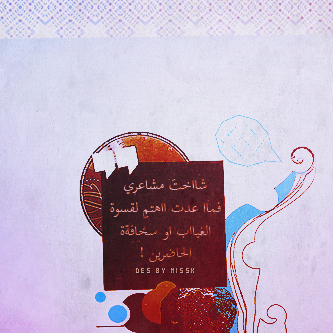 شااختَ مشاعري
فماا عدت ااهتم لقسوة
الغيااب او سخاافة
الحاضرين !
DES BY MISSK